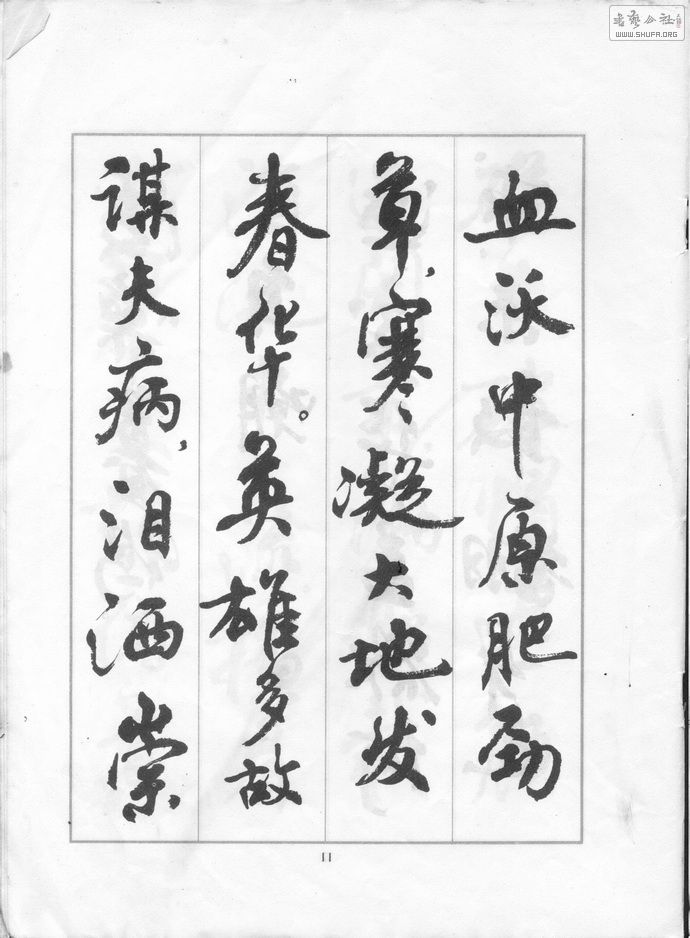 血沃中原肥劲
草，寒凝大地发
春华。英雄多故
谋夫病，泪洒崇
11
书艺公社
WWW.SHUFA.ORG